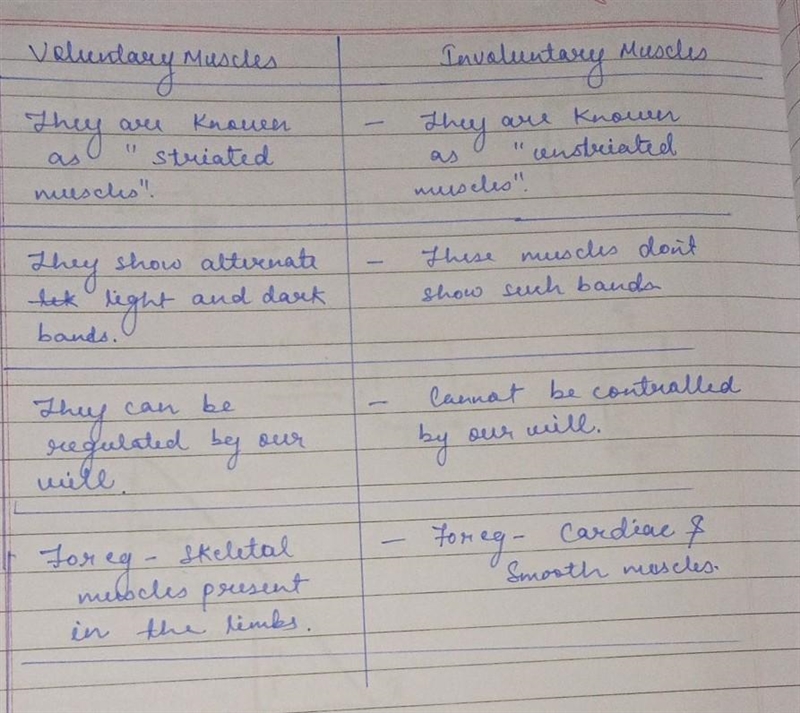 Voluntary Muscles
They are known
as "striated
muscles".
They show alternate
light and dark
bands.
They can be
regulated by our
will.
For eg - Skeletal
muscles present
in the limbs.
Involuntary Muscles
- They are known
as "unstriated
muscles".
- These muscles don't
show such bands
- Cannot be controlled
by our will.
- For eg - Cardiac &
Smooth muscles.